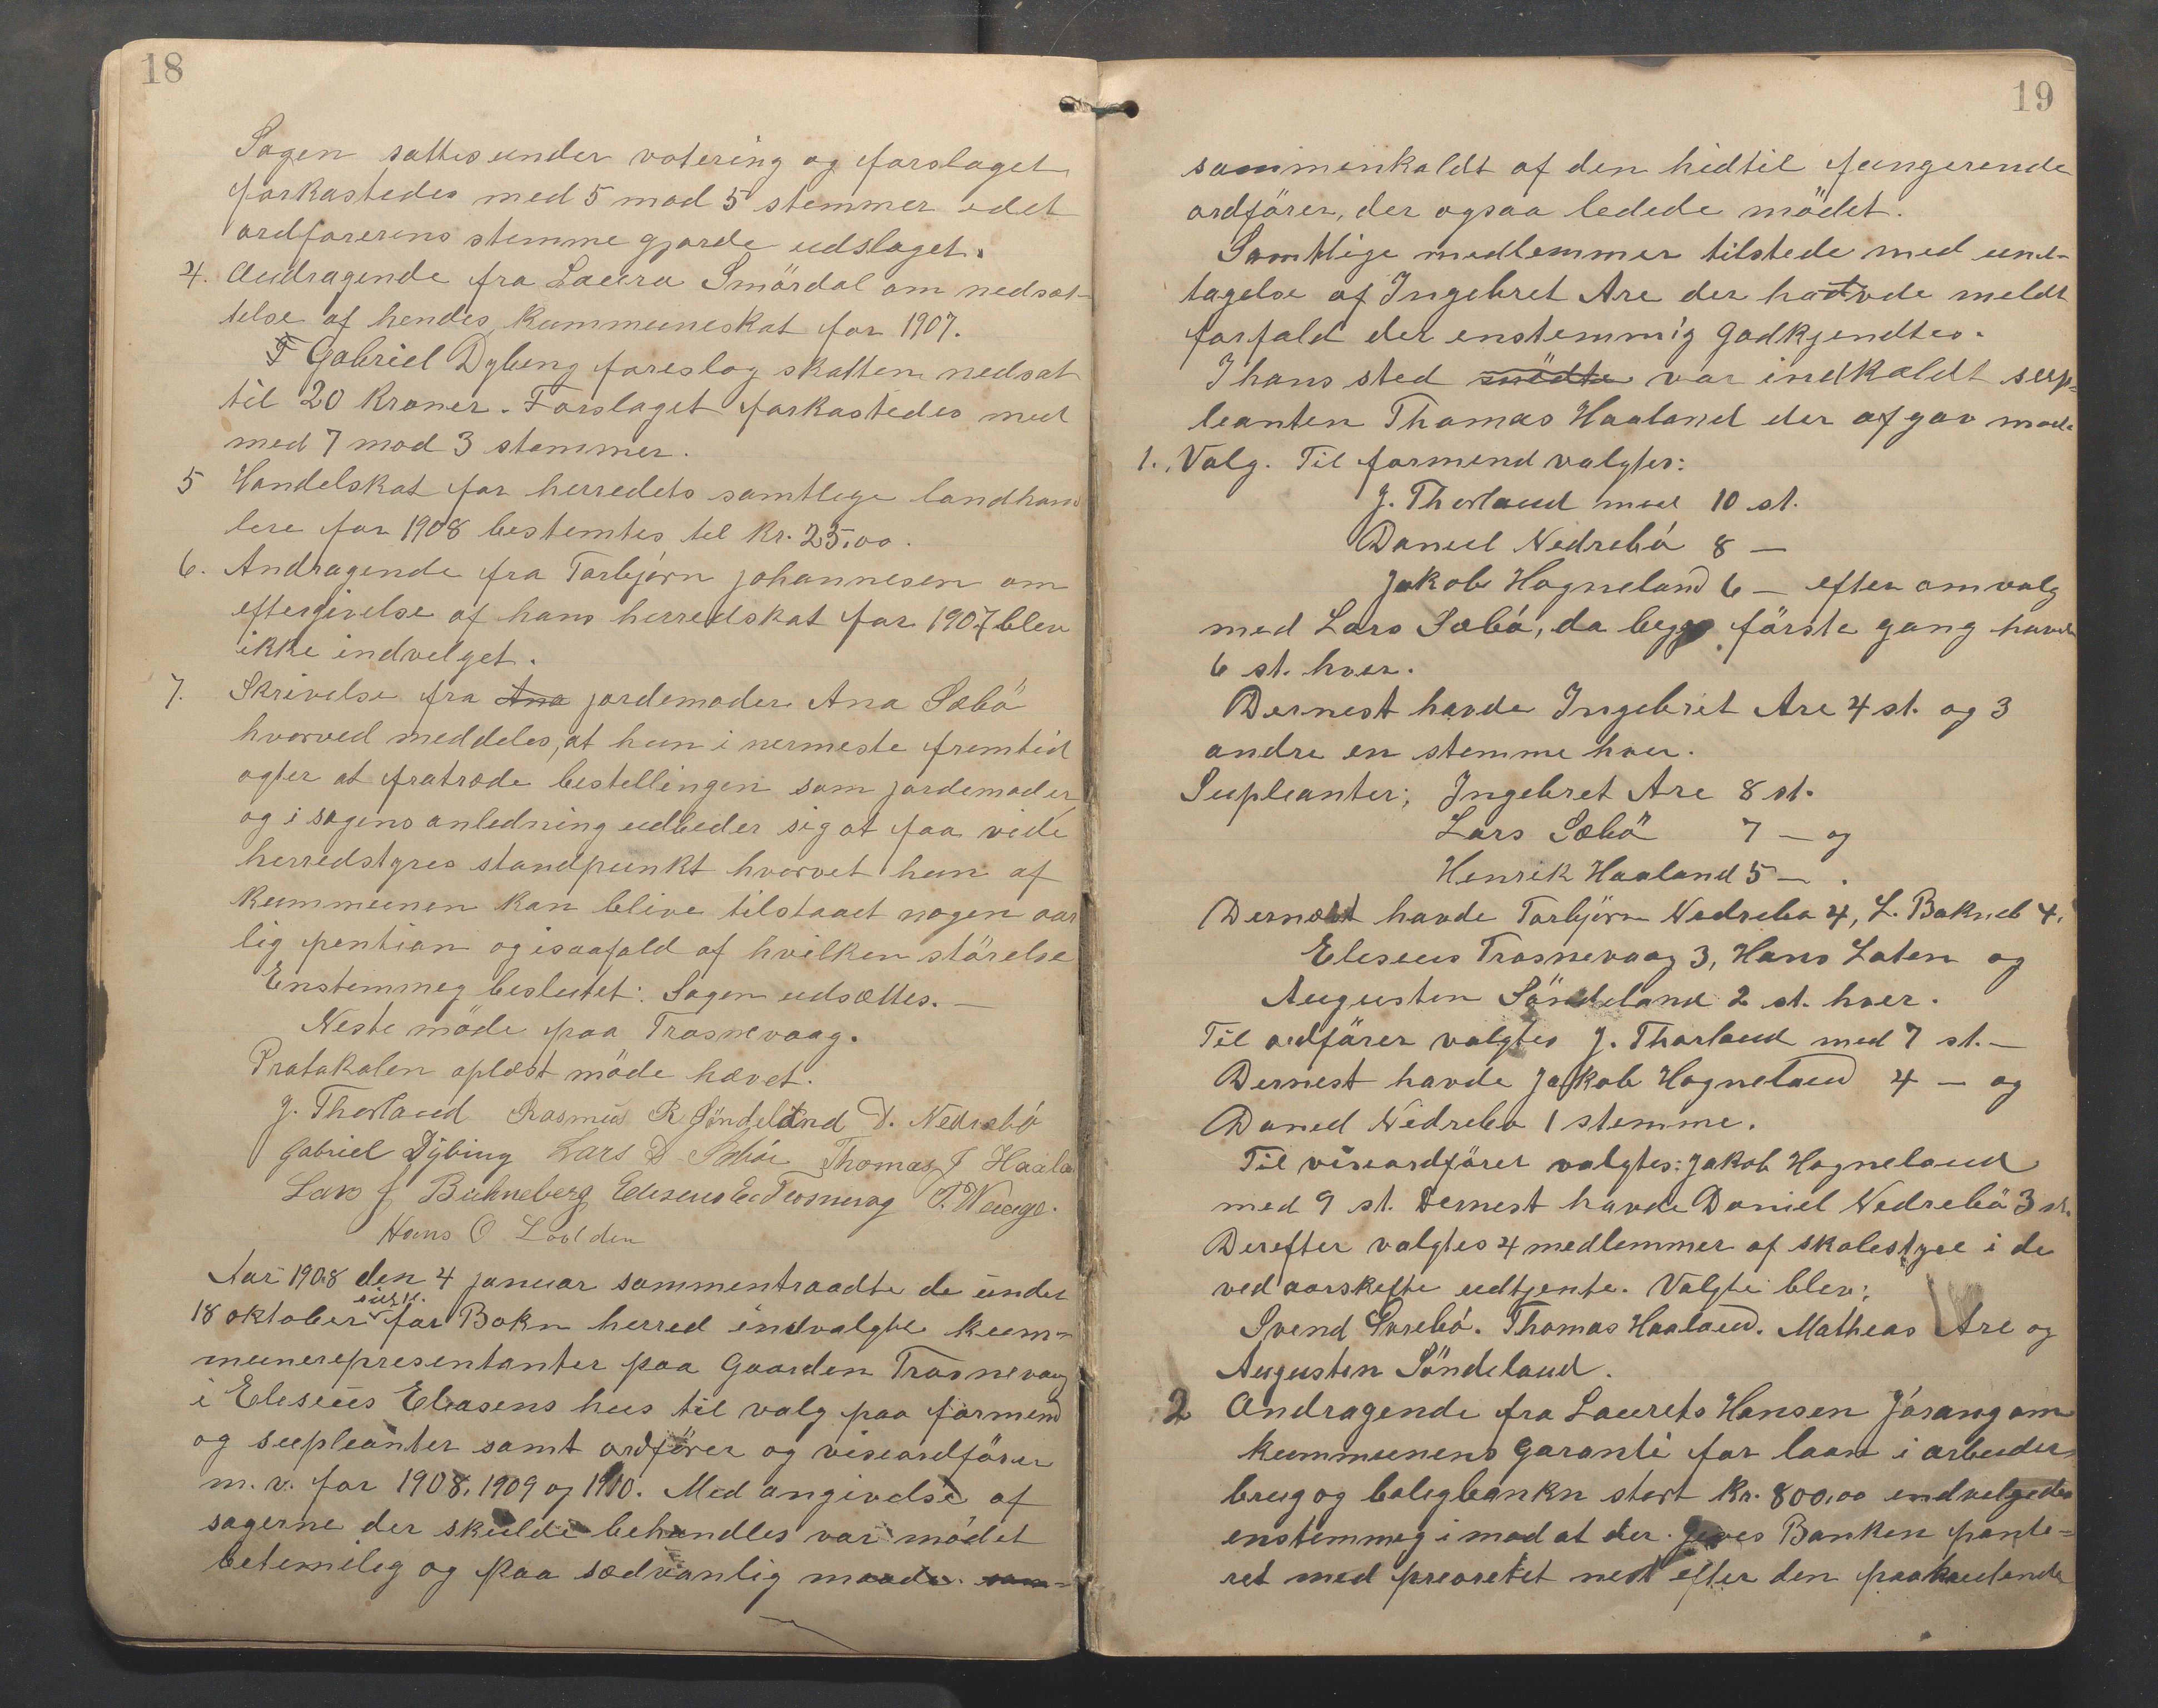 18
Sagen sattes under votering og forslaget
forkastedes med 5 mod 5 stemmer idet
ordførerens stemme gjorde udslaget.
4. Andragende fra Laura Smördal om nedsat-
telse af hendes kommuneskat for 1907.
Gabriel Dybing foreslog skatten nedsat
til 20 kroner. Forslaget forkastedes med
med 7 mod 3 stemmer.
5 Handelskat for herredets samtlige landhand
lere for 1908 bestemtes til kr. 25,00.
6. Andragende fra Torbjörn Johannesen om
eftergivelse af hans herredskat for 1907 blev
ikke indvelget.
7. Skrivelse fra Ana jordemoder Ana Sæbö
hvorved meddeles, at hun i nermeste fremtid
agter at fratræde bestellingen som jordemoder
og i sagens anledning udbeder sig at faa vide
herredstyres standpunkt hvorvet hun af
kommunen kan blive tilstaaet nogen aar
lig pention og isaafald af hvilken störelse
Enstemmeg beslutet: Sagen udsættes. —
Neste möde paa Trosnevaag.
Protokolen oplæst möde hævet.
J. Thorland Rasmus R Söndeland D. Nedrebö
Gabriel Dÿbing Lars D Sæbö Thomas J Haala
Lars J Bukneberg Eliseus E. Trosnevag T. Waage.
Hans O Loden
Aar 1908 den 4 januar sammentraadte de under
sidstl.
18 oktober for Bokn herred indvalgte kom-
munerepresentanter paa Gaarden Trosnevaag
i Eliseus Eliasens hus til valg paa formend
og supleanter samt ordfører og viseordförer
m.v. for 1908, 1909 og 1910. Med angivelse af
sagerne der skulde behandles var mödet
betimelig og paa sædvanlig maade sam-
19
sammenkaldt af den hidtil fungerende
ordförer, der ogsaa ledede mödet.
Samtlige medlemmer tilstede med und-
tagelse af Ingebret Are der havde meldt
forfald der enstemmig godkjendtes.
I hans sted mödte var indkaldt sup-
leanten Thomas Haaland der afgav möde
1. Valg. Til formend valgtes:
J. Thorland med 10 st.
Daniel Nedrebö 8 —
Jakob Hogneland 6 — efter omvalg
med Lars Sæbö, da begge förste gang havde
6 st. hver.
Dernest havde Ingebret Are 4 st. og 3
andre en stemme hver.
Supleanter: Ingebret Are 8 st.
Lars Sæbö 7 — og
Henrik Haaland 5 — .
Dernæst havde Torbjörn Nedrebø 4, L. Bokneb 4,
Eliseus Trosnevaag 3, Hans Loten og
Augusten Söndeland 2 st. hver.
Til ordförer valgtes J. Thorland med 7 st. —
Dernest havde Jakob Hogneland 4 — og
Daniel Nedrebø 1 stemme.
Til viseordförer valgtes: Jakob Hogneland
med 9 st. Dernest havde Daniel Nedrebö 3 st.
Derefter valgtes 4 medlemmer af skolestyre i de
ved aarskifte udtjente. Valgte blev:
Svend Övrebö. Thomas Haaland. Matheas Are og
Augusten Söndeland.
2 Andragende fra Laurets Hansen Jörang om
kommunens Garanti for laan i arbeider
brug og boligbankn stort kr. 800,00 endvelgedes
enstemmeg i mod at der gives Banken pante-
ret med prioretet nest efter den paahvilende